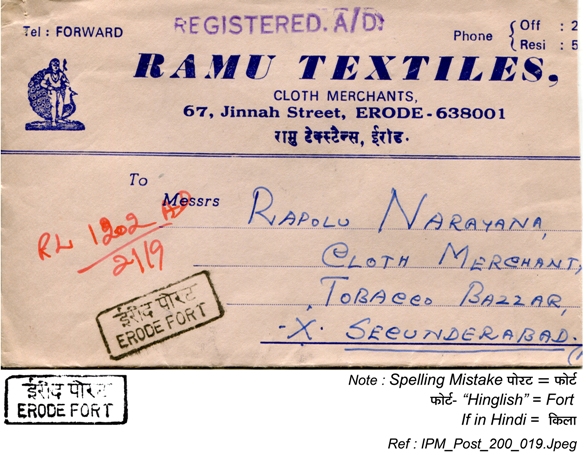 REGISTERED. A/D.
Tel : FORWARD
Phone { Off : 2
Resi : 5
RAMU TEXTILES,
CLOTH MERCHANTS,
67, Jinnah Street, ERODE-638001
रामु टेक्स्टैल्स, ईरोड.
To
Messrs
RAPOLU NARAYANA,
CLOTH MERCHANT,
TOBACCO BAZZAR,
-X. SECUNDERABAD.
RL 1202 AD
21/9
ईरोद पोरट
ERODE FORT
ईरोद पोरट
ERODE FORT
Note : Spelling Mistake पोरट = फोर्ट
फोर्ट- “Hinglish” = Fort
If in Hindi = किला
Ref : IPM_Post_200_019.Jpeg